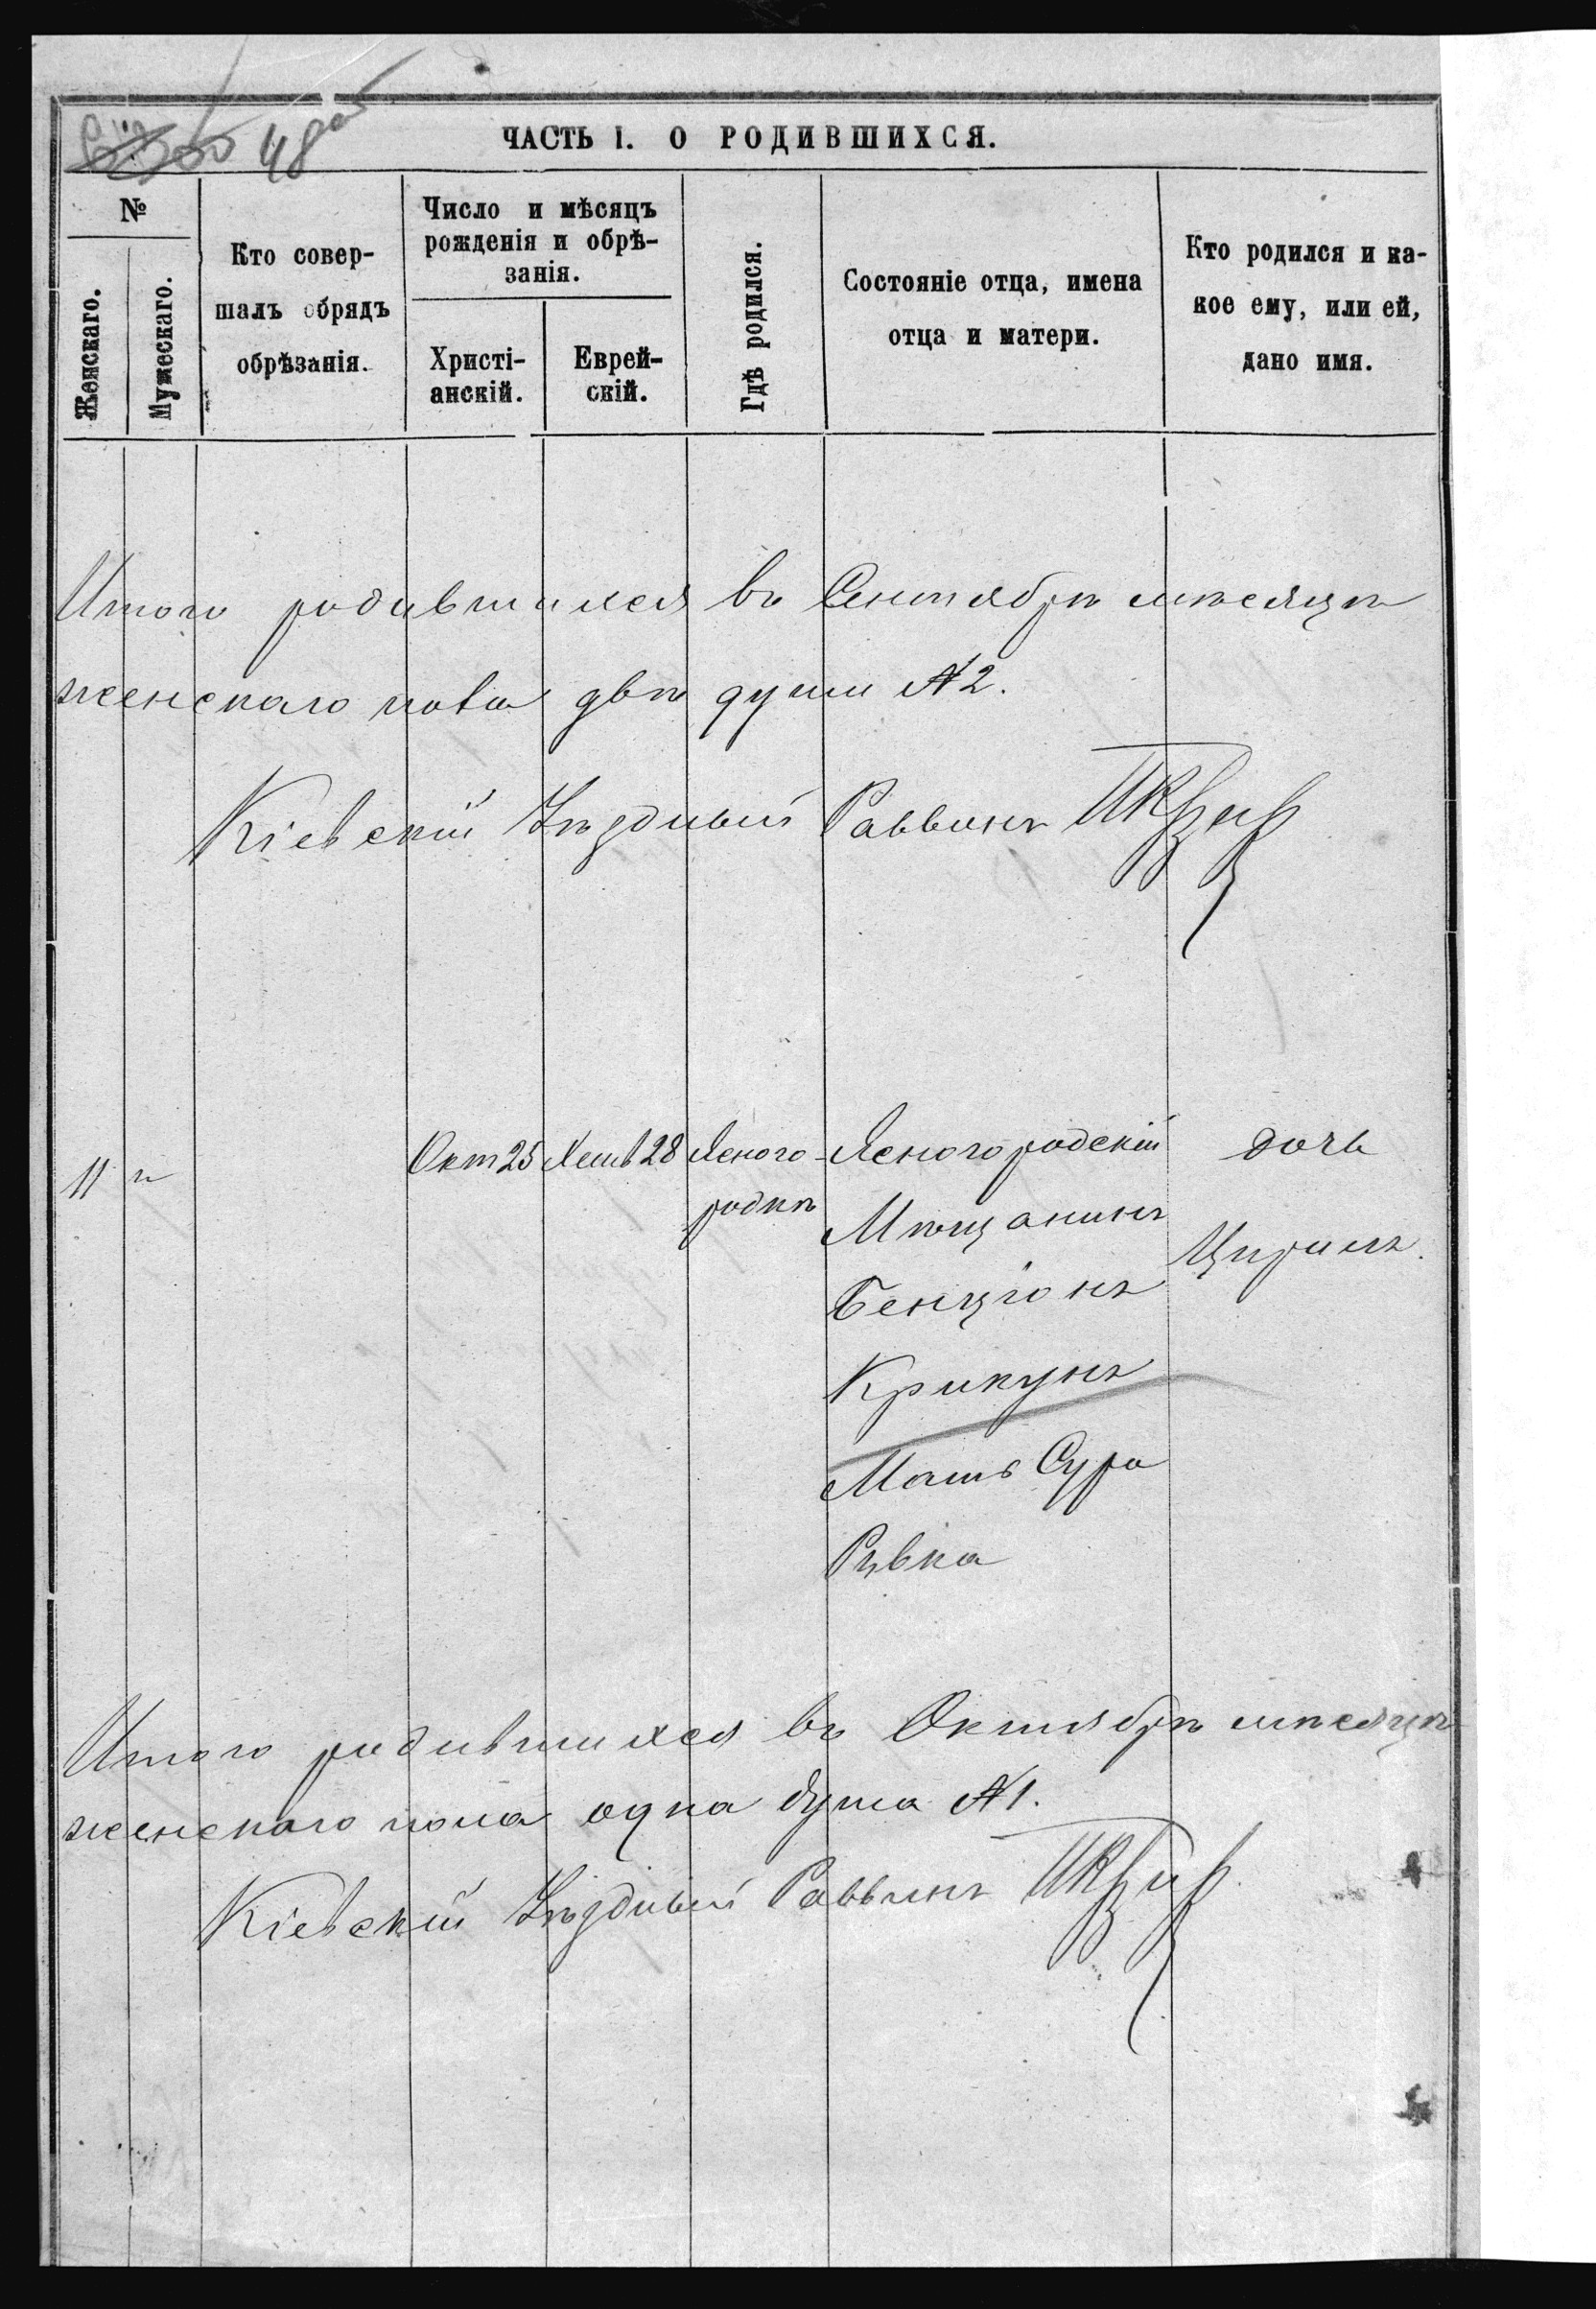 48
ЧАСТЬ I. О РОДИВШИХСЯ.
№
Женскаго.
Мужескаго.
Кто совер-
шалъ обрядъ
обрѣзанія.
Число и мѣсяцъ
рожденія и обрѣ-
занія.
Христі-
анскій.
Еврей-
скій.
Гдѣ родился.
Состояніе отца, имена
отца и матери.
Кто родился и ка-
кое ему, или ей,
дано имя.
Итого родившихся въ Сентябрѣ мѣсяцѣ
женскаго пола двѣ души №2.
Кіевскій Уѣздный Раввинъ
11 "
Окт 25
Хешв 28
Ясного-
родкѣ
Ясногородскій
Мѣщанинъ
Бенціонъ
Крикунъ
Мать Сура
Рывка
дочь
Цирля.
Итого родившихся въ Октябрѣ мѣсяцѣ
женскаго пола одна душа №1.
Кіевскій Уѣздный Раввинъ